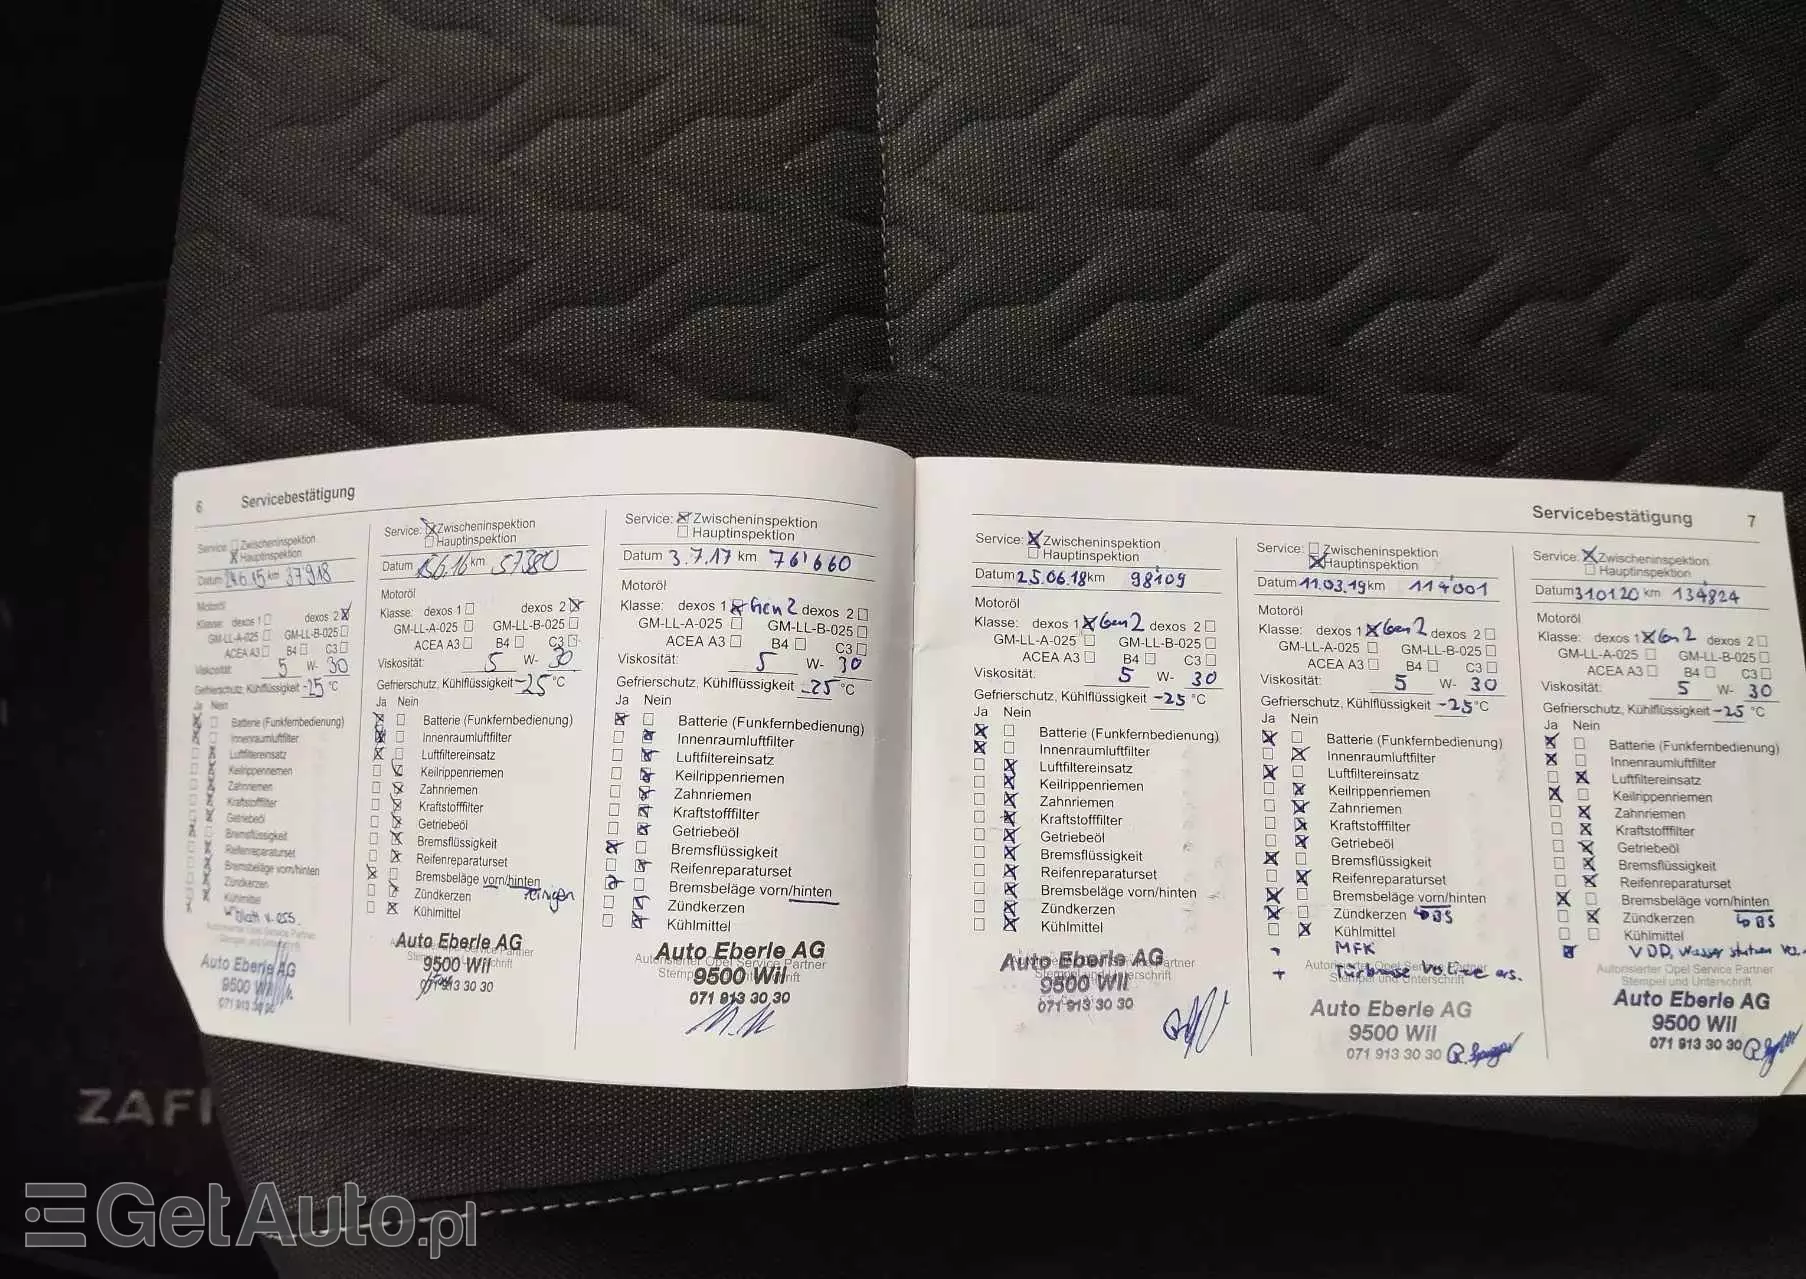 6 Servicebestätigung
Service: Zwischeninspektion
Hauptinspektion
Datum 24.6.15 km 37'918
Motoröl
Klasse: dexos 1 dexos 2
GM-LL-A-025 GM-LL-B-025
ACEA A3 B4 C3
Viskosität: 5 W- 30
Gefrierschutz, Kühlflüssigkeit -25 °C
Ja Nein
Batterie (Funkfernbedienung)
Innenraumluftfilter
Luftfiltereinsatz
Keilrippenriemen
Zahnriemen
Kraftstofffilter
Getriebeöl
Bremsflüssigkeit
Reifenreparaturset
Bremsbeläge vorn/hinten
Zündkerzen
Kühlmittel
Autorisierter Opel Service Partner
Stempel und Unterschrift
Auto Eberle AG
9500 Wil
071 913 30 30
Service: Zwischeninspektion
Hauptinspektion
Datum 6.16 km 57380
Motoröl
Klasse: dexos 1 dexos 2
GM-LL-A-025 GM-LL-B-025
ACEA A3 B4 C3
Viskosität: 5 W- 30
Gefrierschutz, Kühlflüssigkeit -25 °C
Ja Nein
Batterie (Funkfernbedienung)
Innenraumluftfilter
Luftfiltereinsatz
Keilrippenriemen
Zahnriemen
Kraftstofffilter
Getriebeöl
Bremsflüssigkeit
Reifenreparaturset
Bremsbeläge vorn/hinten
Zündkerzen
Kühlmittel
Auto Eberle AG
9500 Wil
071 913 30 30
Service: Zwischeninspektion
Hauptinspektion
Datum 3.7.17 km 76'660
Motoröl
Klasse: dexos 1 Gen 2 dexos 2
GM-LL-A-025 GM-LL-B-025
ACEA A3 B4 C3
Viskosität: 5 W- 30
Gefrierschutz, Kühlflüssigkeit -25 °C
Ja Nein
Batterie (Funkfernbedienung)
Innenraumluftfilter
Luftfiltereinsatz
Keilrippenriemen
Zahnriemen
Kraftstofffilter
Getriebeöl
Bremsflüssigkeit
Reifenreparaturset
Bremsbeläge vorn/hinten
Zündkerzen
Kühlmittel
Autorisierter Opel Service Partner
Stempel und Unterschrift
Auto Eberle AG
9500 Wil
071 913 30 30
Servicebestätigung 7
Service: Zwischeninspektion
Hauptinspektion
Datum 25.06.18 km 98'109
Motoröl
Klasse: dexos 1 Gen 2 dexos 2
GM-LL-A-025 GM-LL-B-025
ACEA A3 B4 C3
Viskosität: 5 W- 30
Gefrierschutz, Kühlflüssigkeit -25 °C
Ja Nein
Batterie (Funkfernbedienung)
Innenraumluftfilter
Luftfiltereinsatz
Keilrippenriemen
Zahnriemen
Kraftstofffilter
Getriebeöl
Bremsflüssigkeit
Reifenreparaturset
Bremsbeläge vorn/hinten
Zündkerzen
Kühlmittel
Auto Eberle AG
9500 Wil
071 913 30 30
Service: Zwischeninspektion
Hauptinspektion
Datum 11.03.19 km 114'001
Motoröl
Klasse: dexos 1 Gen 2 dexos 2
GM-LL-A-025 GM-LL-B-025
ACEA A3 B4 C3
Viskosität: 5 W- 30
Gefrierschutz, Kühlflüssigkeit -25 °C
Ja Nein
Batterie (Funkfernbedienung)
Innenraumluftfilter
Luftfiltereinsatz
Keilrippenriemen
Zahnriemen
Kraftstofffilter
Getriebeöl
Bremsflüssigkeit
Reifenreparaturset
Bremsbeläge vorn/hinten
Zündkerzen BS
Kühlmittel
+ MFK
+ ers.
Autorisierter Opel Service Partner
Stempel und Unterschrift
Auto Eberle AG
9500 Wil
071 913 30 30
Service: Zwischeninspektion
Hauptinspektion
Datum 310120 km 134'824
Motoröl
Klasse: dexos 1 Gen 2 dexos 2
GM-LL-A-025 GM-LL-B-025
ACEA A3 B4 C3
Viskosität: 5 W- 30
Gefrierschutz, Kühlflüssigkeit -25 °C
Ja Nein
Batterie (Funkfernbedienung)
Innenraumluftfilter
Luftfiltereinsatz
Keilrippenriemen
Zahnriemen
Kraftstofffilter
Getriebeöl
Bremsflüssigkeit
Reifenreparaturset
Bremsbeläge vorn/hinten
Zündkerzen BS
Kühlmittel
VDD, Wasser
Autorisierter Opel Service Partner
Stempel und Unterschrift
Auto Eberle AG
9500 Wil
071 913 30 30
ZAFI
GetAuto.pl